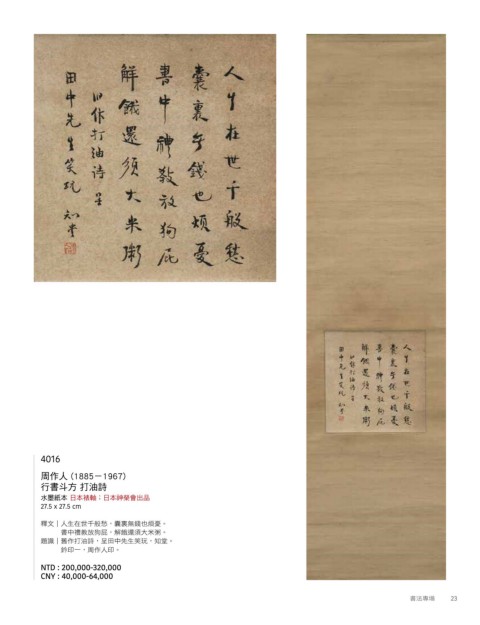 人生在世千般愁
囊裏無錢也煩憂
書中禮教放狗屁
解餓還須大米粥
旧作打油诗呈
田中先生笑玩 知堂
4016
周作人 (1885－1967)
行書斗方 打油詩
水墨紙本 日本裱軸；日本紳榮會出品
27.5 x 27.5 cm
釋文｜人生在世千般愁，囊裏無錢也煩憂。
書中禮教放狗屁，解餓還須大米粥。
題識｜舊作打油詩，呈田中先生笑玩，知堂。
鈐印一，周作人印。
NTD : 200,000-320,000
CNY : 40,000-64,000
書法專場 23